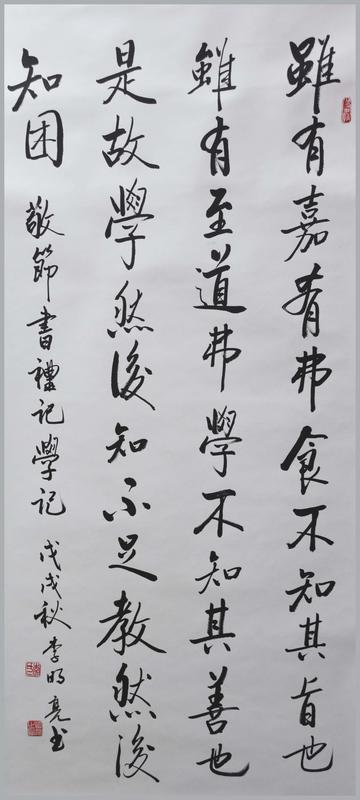 雖有嘉肴弗食不知其旨也
雖有至道弗學不知其善也
是故學然後知不足教然後
知困
敬節書禮記學記
戊戌秋李明亮书